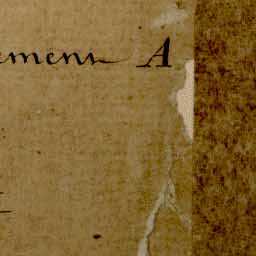 emenn A